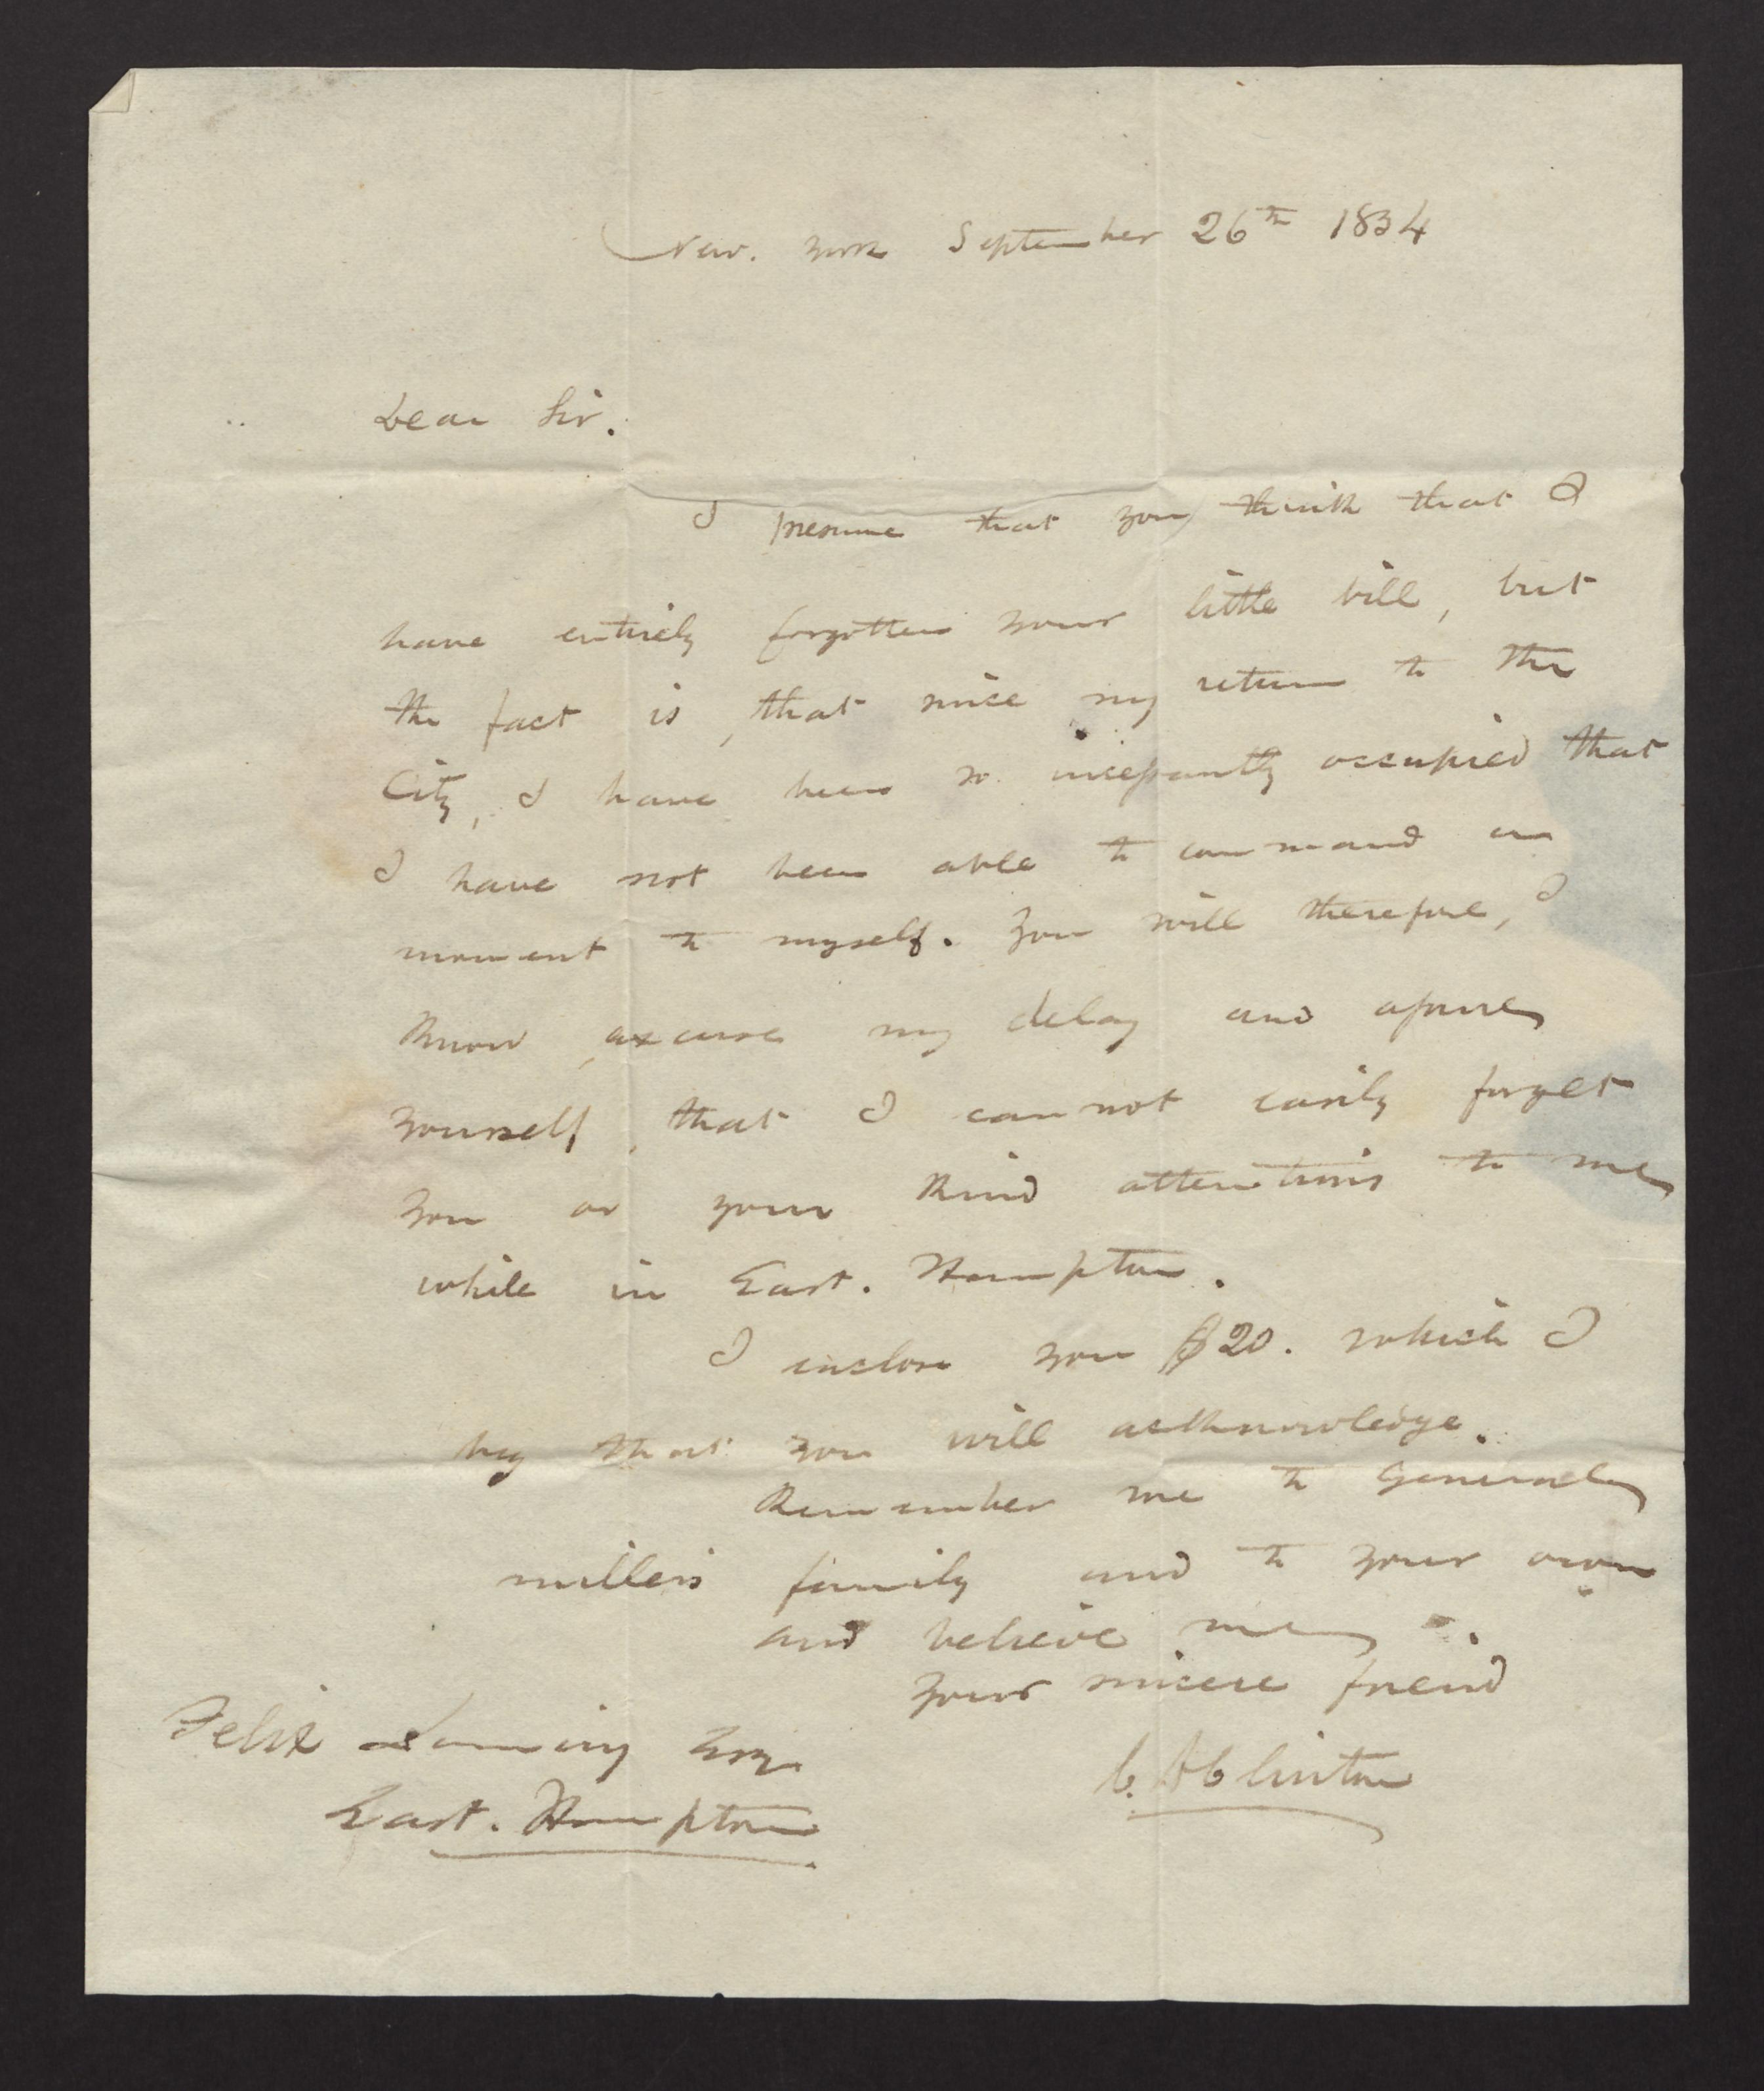 New. York September 26th 1834
Dear Sir.
I presume that you think that I
have entirely forgotten your little bill, but
the fact is, that since my return to the
City, I have been so incessantly occupied that
I have not been able to command a
moment to myself. You will therefore, I
know, excuse my delay and assure
yourself, that I cannot easily forget
you or your kind attentions to me
while in East. Hampton.
I enclose you $20. which I
beg that you will acknowledge.
Remember me to General
Miller's family and to your own
and believe me
your sincere friend
C. A Clinton
Felix Dominy Esq
East. Hampton